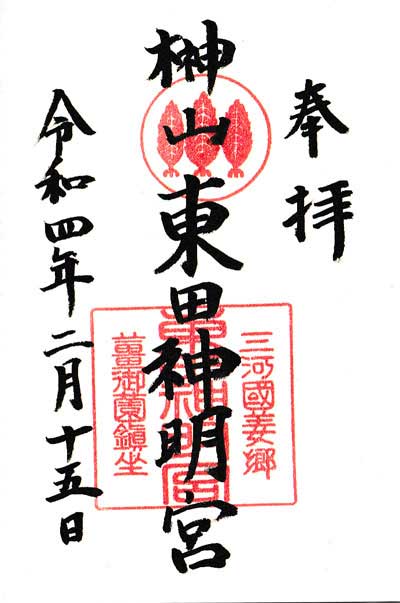 奉拝
榊山東田神明宮
三河國姜郷
薑御薗鎮坐
令和四年二月十五日